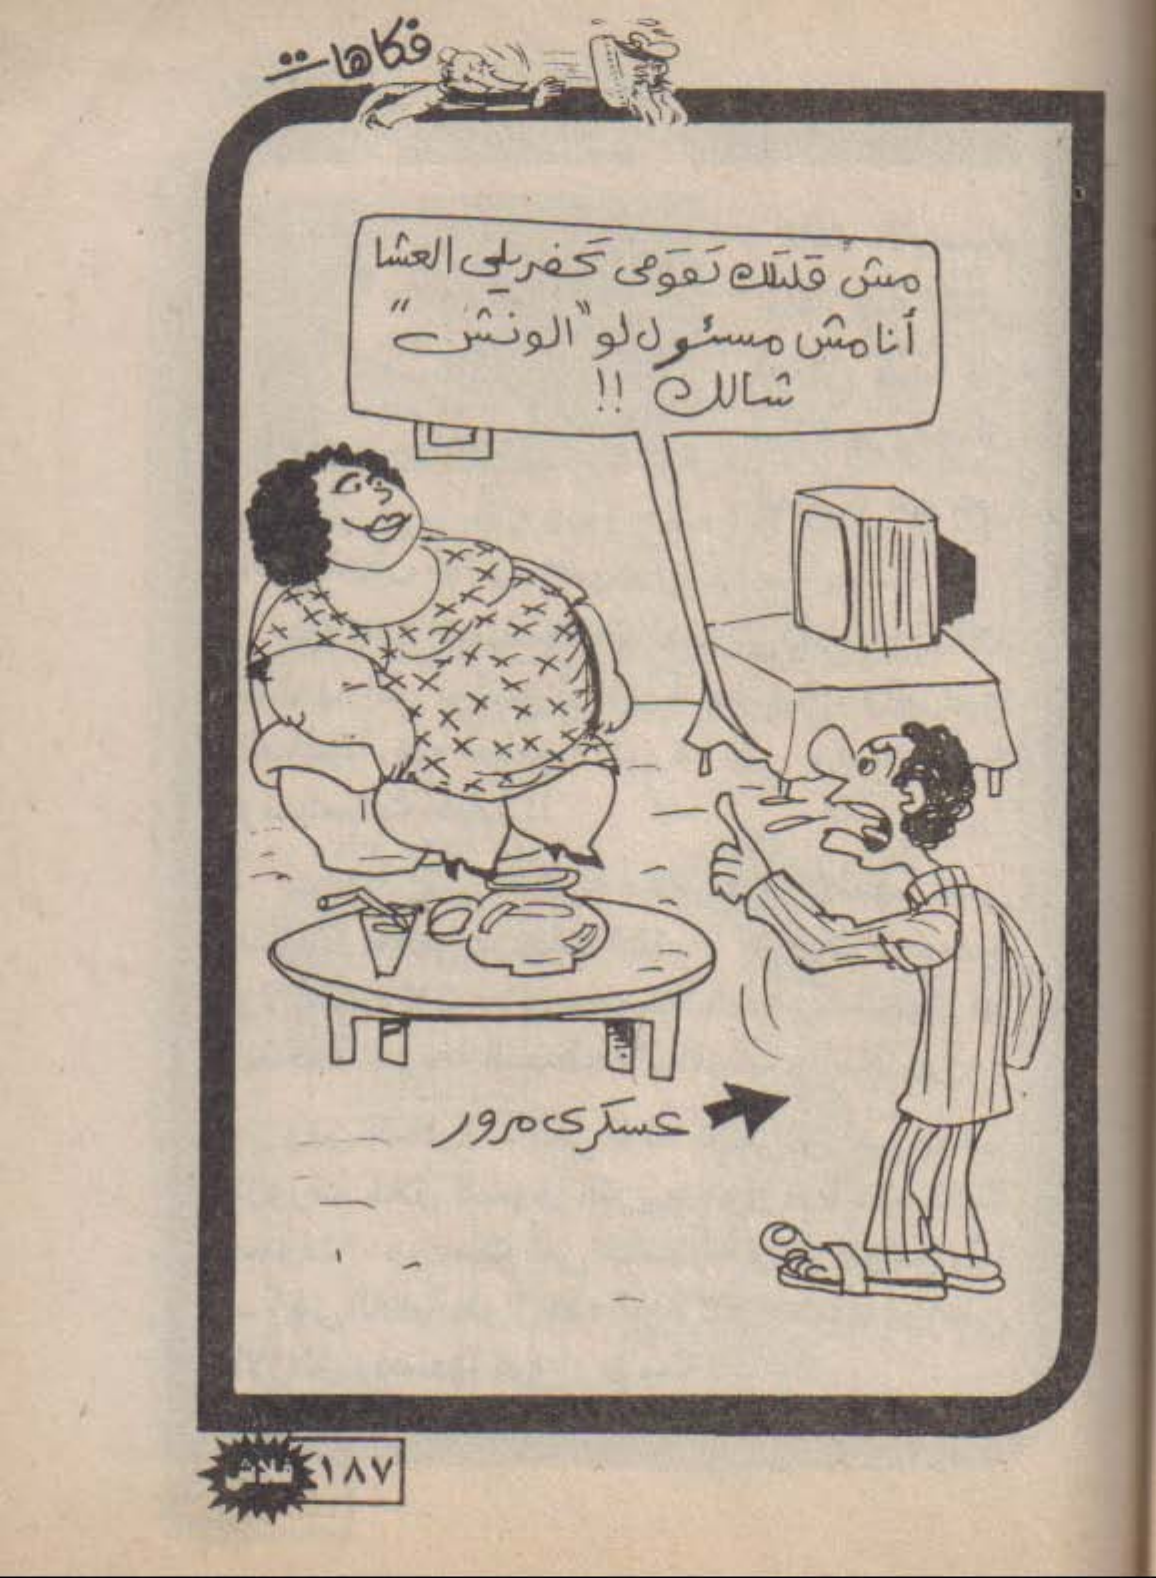 فكاهات
مش قلتلك تقومى تحضريلي العشا
أنا مش مسئول لو "الونش"
شالك !!
عسكرى مرور
فلاش ١٨٧